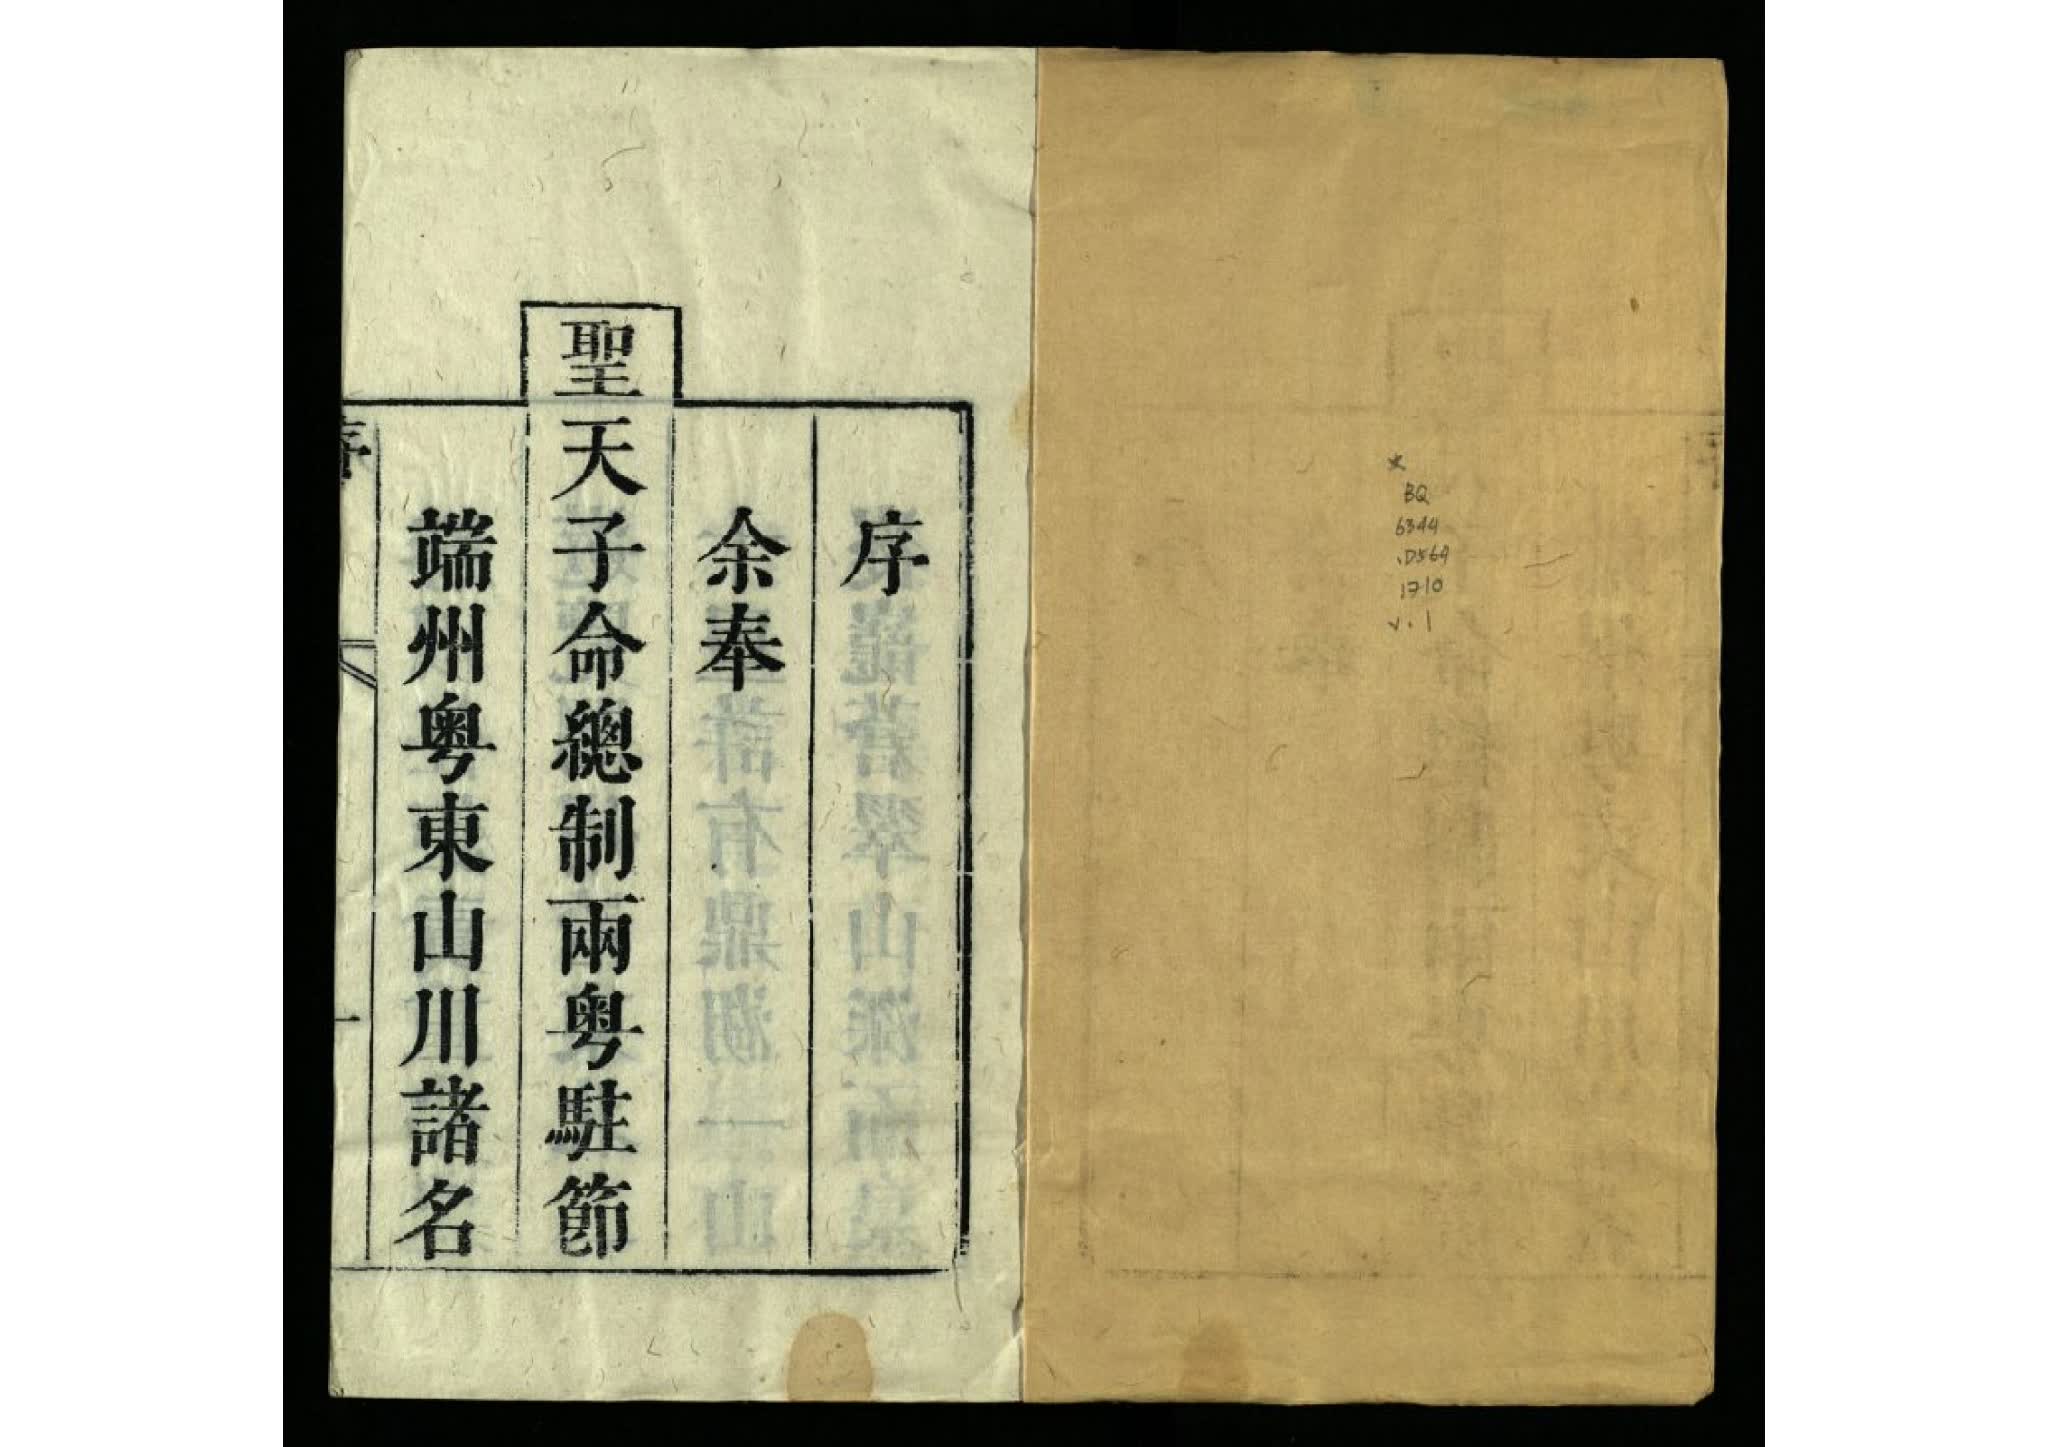 ★
BQ
6344
.D564
1710
v.1
序
余奉
聖天子命總制兩粵駐節
端州粵東山川諸名
序
一